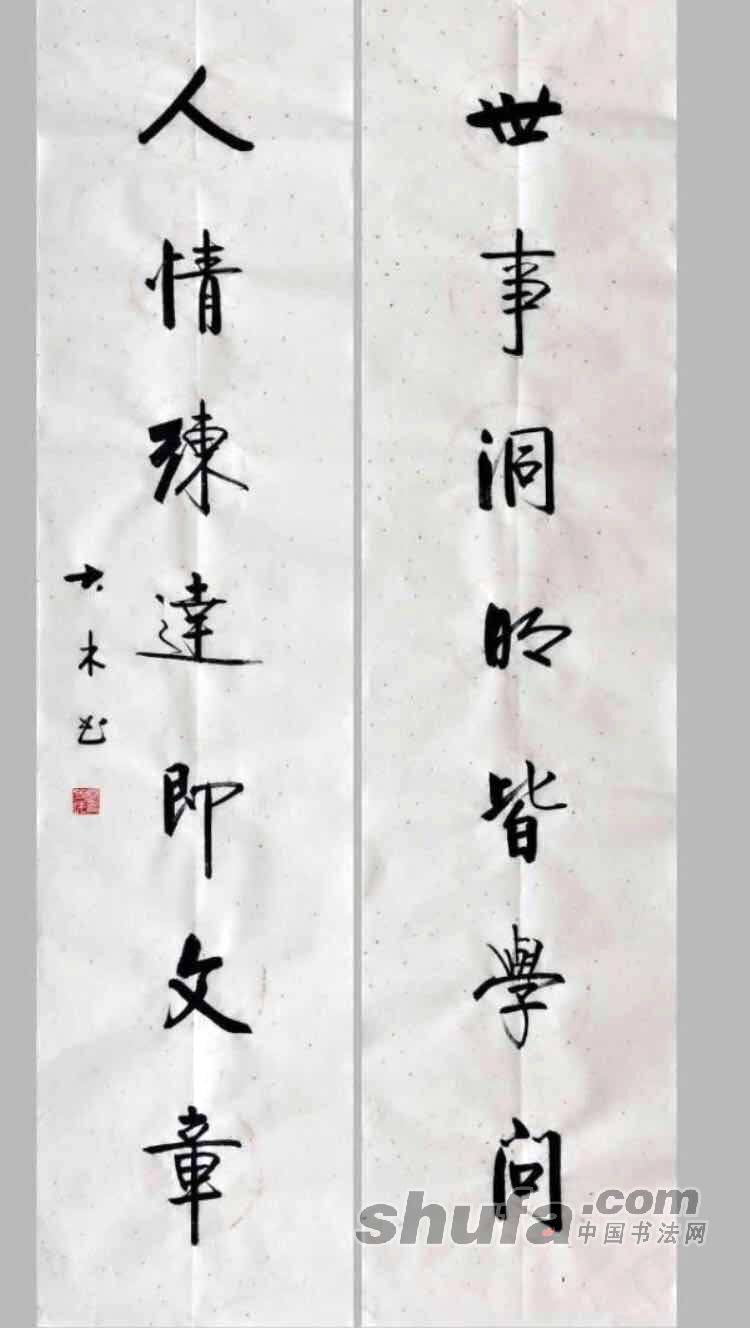 世事洞明皆學問
人情練達即文章
大木书
shufa.com
中国书法网